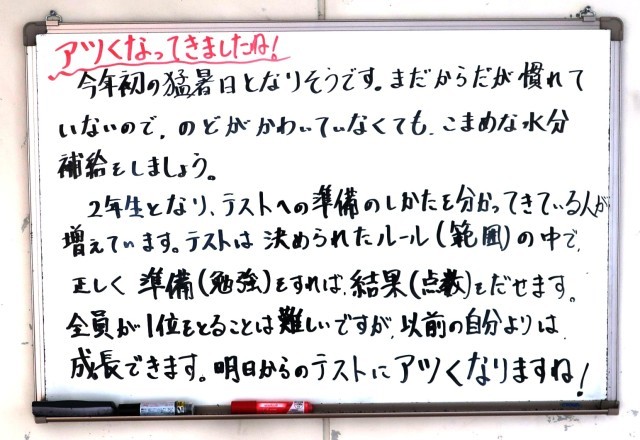 アツくなってきましたね！
今年初の猛暑日となりそうです。まだからだが慣れて
いないので、のどがかわいていなくても、こまめな水分
補給をしましょう。
2年生となり、テストへの準備のしかたを分かってきている人が
増えています。テストは決められたルール（範囲）の中で、
正しく準備（勉強）をすれば、結果（点数）をだせます。
全員が1位をとることは難しいですが、以前の自分よりは、
成長できます。明日からのテストにアツくなりますね！